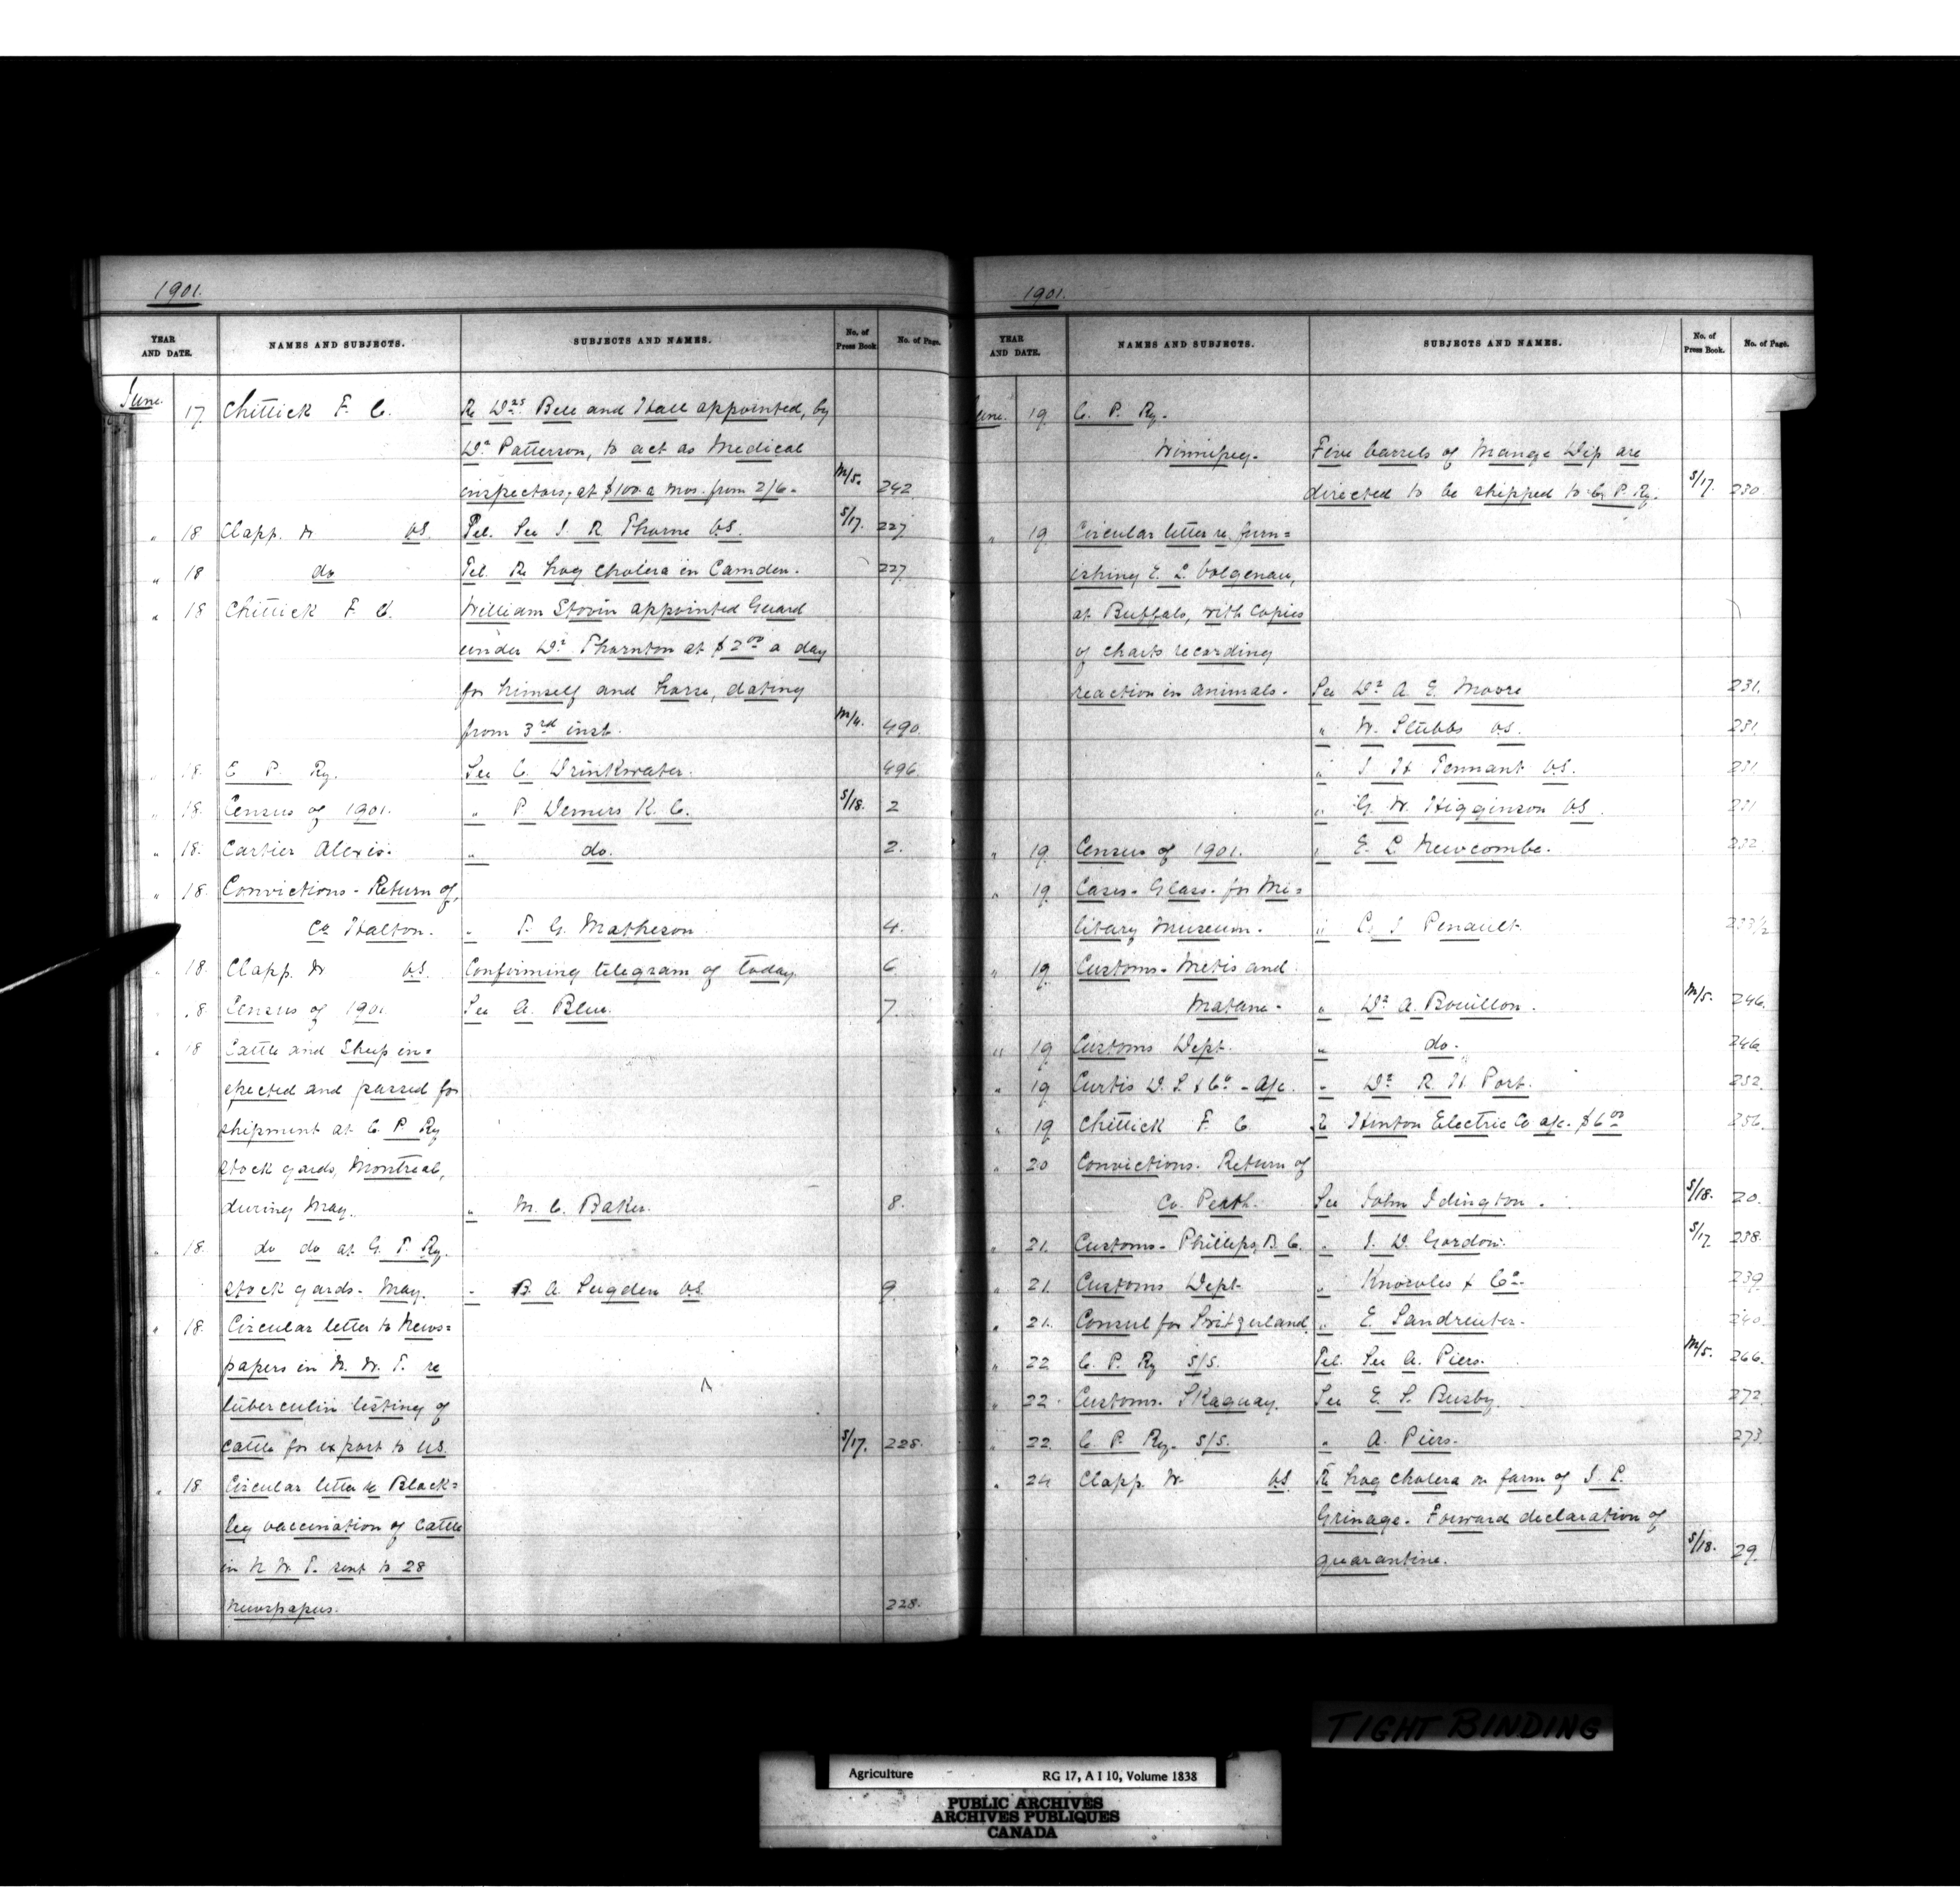 1901.
YEAR AND DATE. NAMES AND SUBJECTS. SUBJECTS AND NAMES. No. of Press Book. No. of Page.
June. 17 Chittick F. C. Re Drs. Bell and Hall appointed, by
Dr Patterson, to act as Medical
inspectors, at $100 a mos. from 2/6. M/5. 242
" 18 Clapp. W VS. Tel. See J. R. Thorne VS. S/17. 227
" 18 do Tel. Re hog cholera in Camden. 227
" 18 Chittick F. C. William Stovin appointed Guard
under Dr. Thornton at $2.00 a day
for himself and horse, dating
from 3rd inst. M/4. 490
" 18. C. P. Ry. See C. Drinkwater. 496
" 18. Census of 1901. " P Demers K. C. S/18. 2
" 18. Cartier Alexis. " do. 2.
" 18. Convictions - Return of,
Co. Halton. " T. G. Matheson 4.
" 18. Clapp. W VS. Confirming telegram of today. 6
" 18 Census of 1901 See A. Blue. 7.
" 18 Cattle and Sheep in=
spected and passed for
shipment at C. P. Ry
stock yards, Montreal,
during May. " M. C. Baker. 8.
" 18. do do at G. T. Ry.
stock yards - May. " B. A. Sugden VS. 9.
" 18. Circular letter to News=
papers in N. W. T. re
tuberculin testing of
cattle for export to U.S. S/17. 228.
" 18 Circular letter re Black=
leg vaccination of Cattle
in N W T. sent to 28
newspapers. 228.
1901.
YEAR AND DATE. NAMES AND SUBJECTS. SUBJECTS AND NAMES. No. of Press Book. No. of Page.
June. 19 C. P. Ry.
Winnipeg. Five barrels of Mange Dip are
directed to be shipped to C. P. Ry. S/17. 230
" 19. Circular letter re furn=
ishing E. L. Volgenau,
at Buffalo, with Copies
of charts recording
reaction in animals. See Dr A. E. Moore 231.
" W. Stubbs VS. 231
" J. H. Tennant VS. 231
" G. W. Higginson VS. 231
" 19 Census of 1901. " E. L. Newcombe. 232
" 19 Cases - Glass - for Mi=
litary Museum. " 233½
" 19. Customs - Metis and
Matane. " Dr A. Bouillon. M/5. 246.
" 19 Customs Dept. " do. 246
" 19 Curtis D. S. & Co - A/c. " Dr R. H. Port. 252.
" 19 Chittick F. C Re Hinton Electric Co a/c. $6.00 256.
" 20 Convictions. Return of
Co. Perth. See John Idington. S/18. 20.
" 21. Customs - Phillips, B. C. " J. D. Gordon. S/17. 238.
" 21. Customs Dept " Knowles & Co. 239.
" 21. Consul for Switzerland " E. Sandreuter. 240
" 22 C. P. Ry S/S. Tel. See A. Piers. M/5. 266.
" 22. Customs. Skaguay. See E. S. Busby. 272
" 22. C. P. Ry. S/S. " A. Piers. 273
" 24 Clapp. W. VS. Re hog cholera on farm of
Grinage. Forward declaration of
quarantine. S/18. 29.
TIGHT BINDING
Agriculture RG 17, A I 10, Volume 1838
PUBLIC ARCHIVES
ARCHIVES PUBLIQUES
CANADA